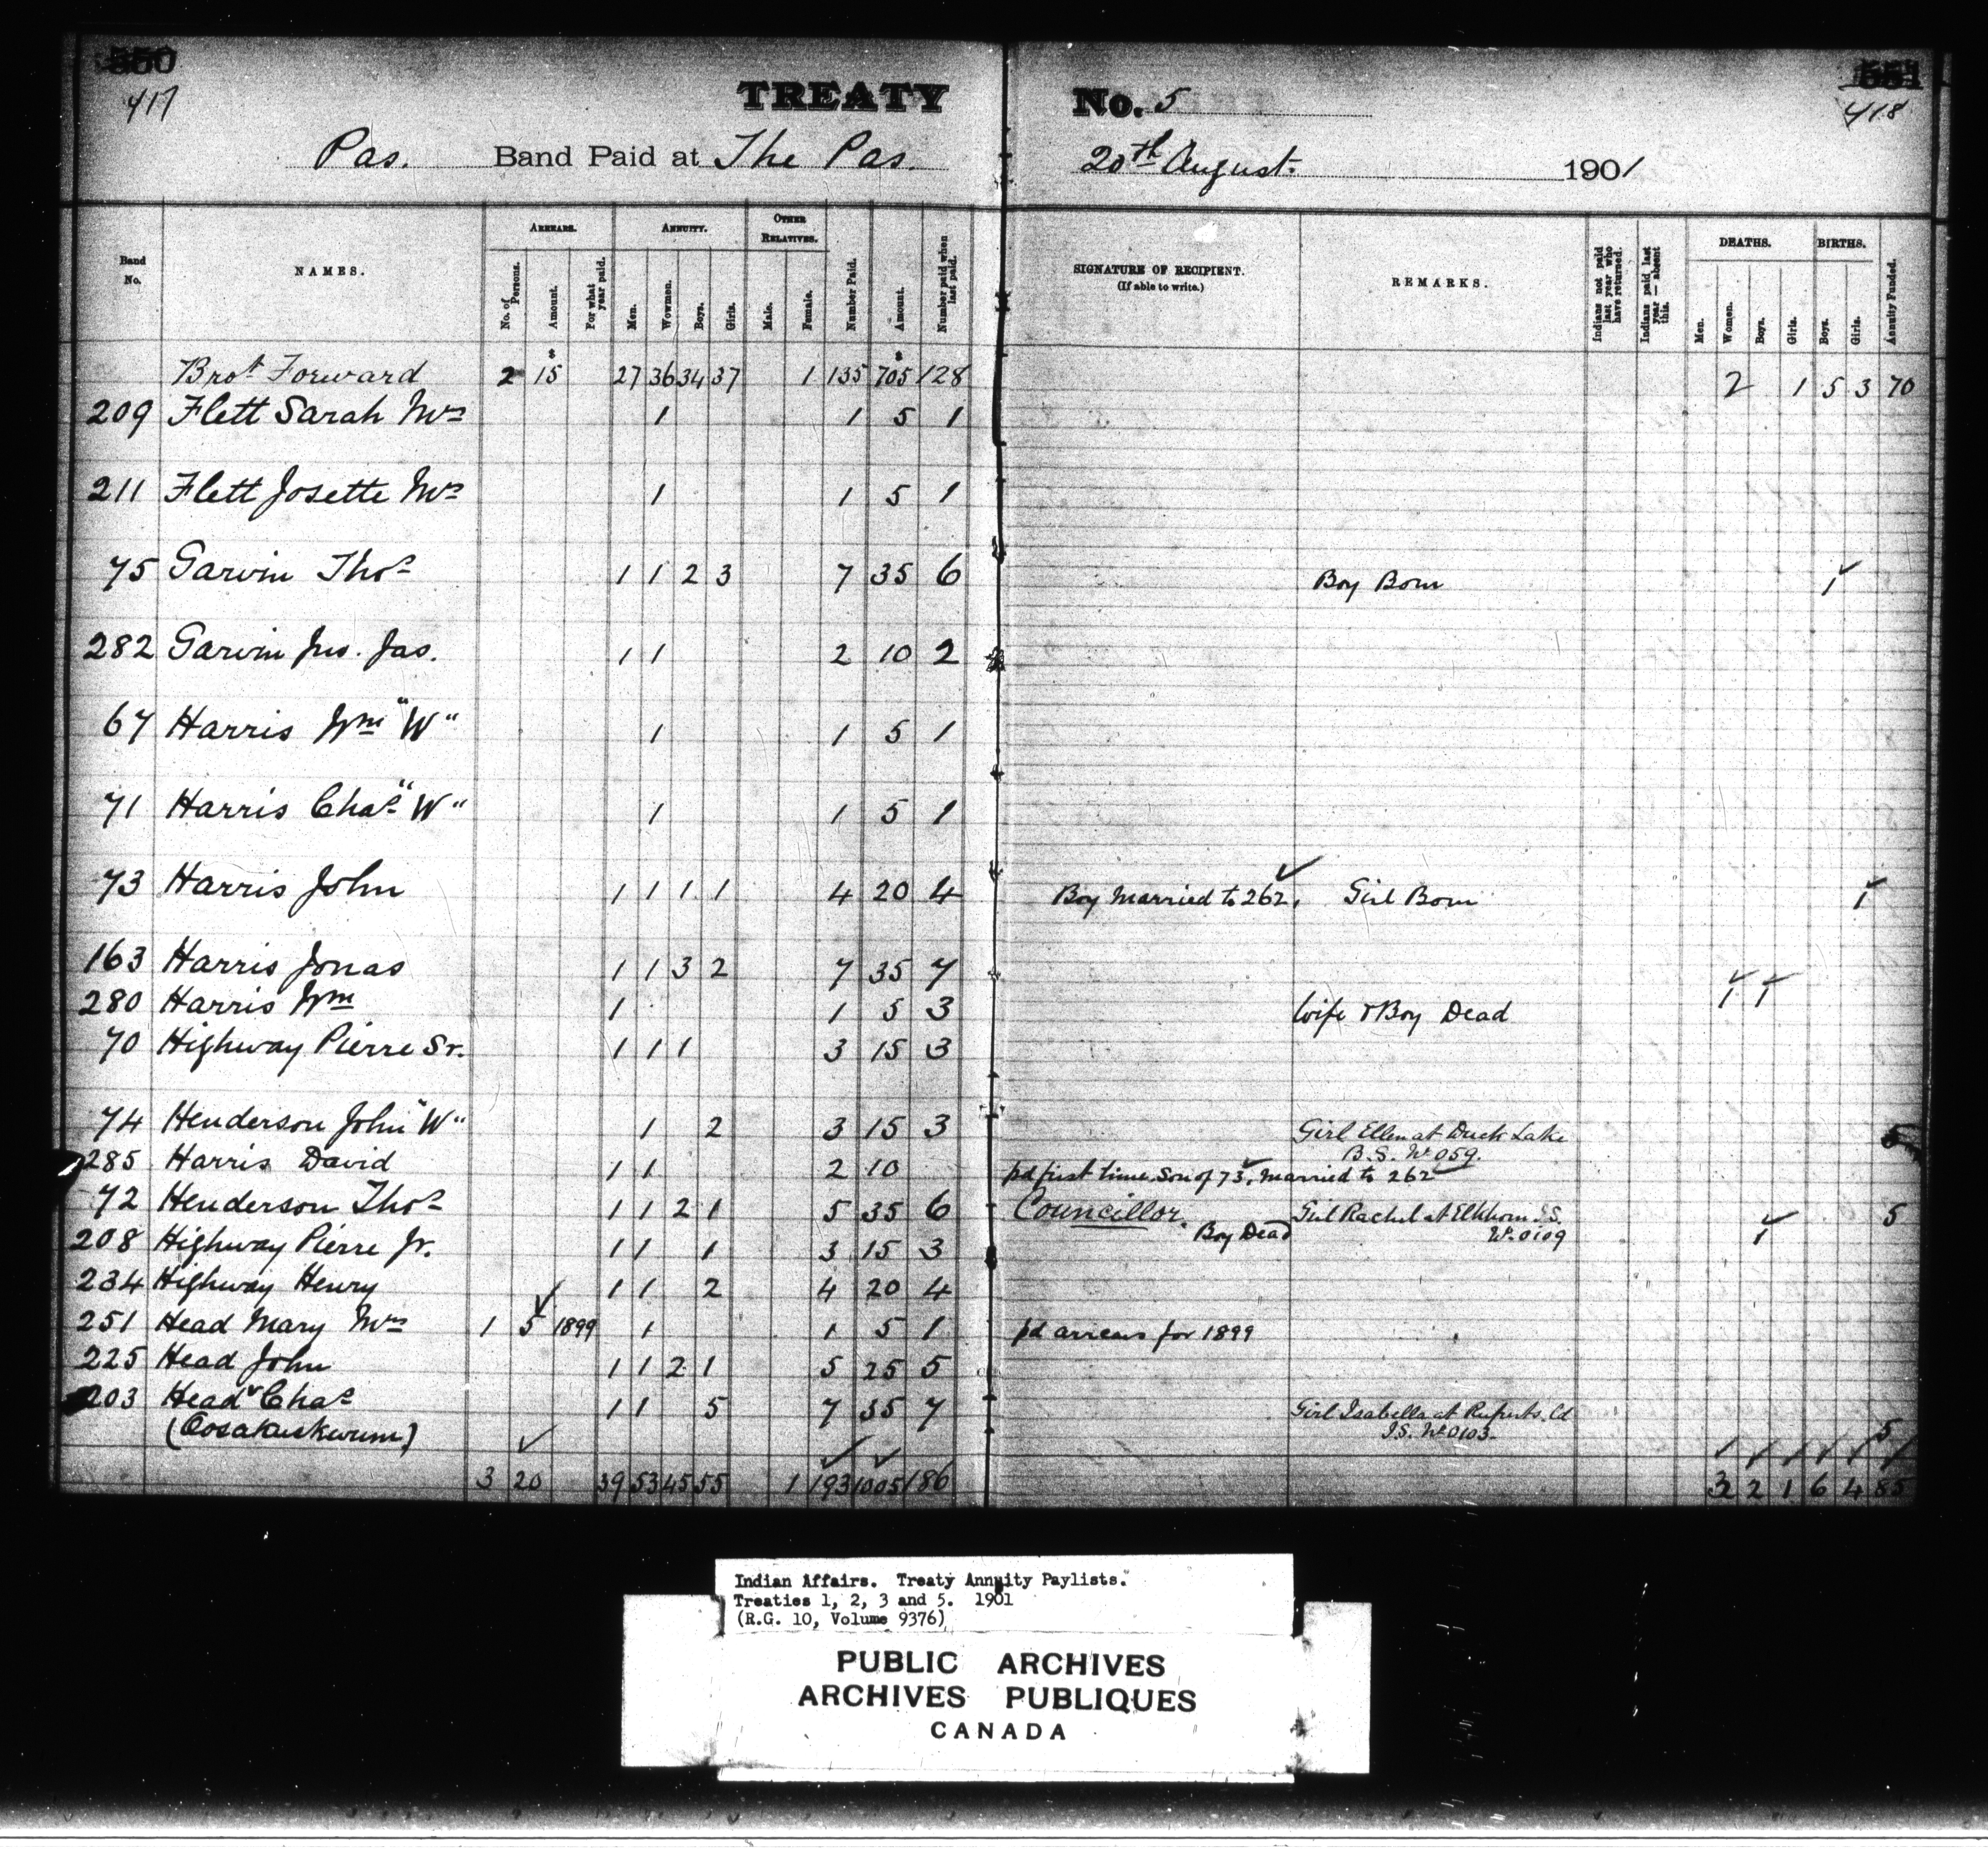 550
417
TREATY No. 5
551
418
Pas. Band Paid at The Pas. 20th August. 1901
Band No.
NAMES.
ARREARS.
No. of Persons.
Amount.
For what year paid.
ANNUITY.
Men.
Wowmen.
Boys.
Girls.
OTHER RELATIVES.
Male.
Female.
Number Paid.
Amount.
Number paid when last paid.
SIGNATURE OF RECIPIENT.
(If able to write.)
REMARKS.
Indians not paid last year who have returned.
Indians paid last year — absent this.
DEATHS.
Men.
Women.
Boys.
Girls.
BIRTHS.
Boys.
Girls.
Annuity Funded.
Brot Forward 2 15 27 36 34 37 1 135 705 128 2 1 5 3 70
209 Flett Sarah Mrs 1 1 5 1
211 Flett Josette Mrs 1 1 5 1
75 Garvin Thos 1 1 2 3 7 35 6 Boy Born 1
282 Garvin Jno. Jas. 1 1 2 10 2
67 Harris Wm "W" 1 1 5 1
71 Harris Chas "W" 1 1 5 1
73 Harris John 1 1 1 1 4 20 4 Boy Married to 262, Girl Born 1
163 Harris Jonas 1 1 3 2 7 35 7
280 Harris Wm 1 1 5 3 Wife & Boy Dead 1 1
70 Highway Pierre Sr. 1 1 1 3 15 3
74 Henderson John "W" 1 2 3 15 3 Girl Ellen at Duck Lake 5
B.S. No 059.
285 Harris David 1 1 2 10 pd first time, Son of 73, Married to 262
72 Henderson Thos 1 1 2 1 5 35 6 Councillor. Girl Rachel at Elkhorn I.S. 5
Boy Dead No 0109 1
208 Highway Pierre Jr. 1 1 1 3 15 3
234 Highway Henry 1 1 2 4 20 4
251 Head Mary Mrs 1 5 1899 1 1 5 1 pd arrears for 1899
225 Head John 1 1 2 1 5 25 5
203 Head Chas 1 1 5 7 35 7 Girl Isabella at Ruperts Ld 5
(Oosakuskwum) I.S. No 0103.
3 20 39 53 45 55 1 193 1005 186 3 2 1 6 4 85
Indian Affairs. Treaty Annuity Paylists.
Treaties 1, 2, 3 and 5. 1901
(R.G. 10, Volume 9376)
PUBLIC ARCHIVES
ARCHIVES PUBLIQUES
CANADA